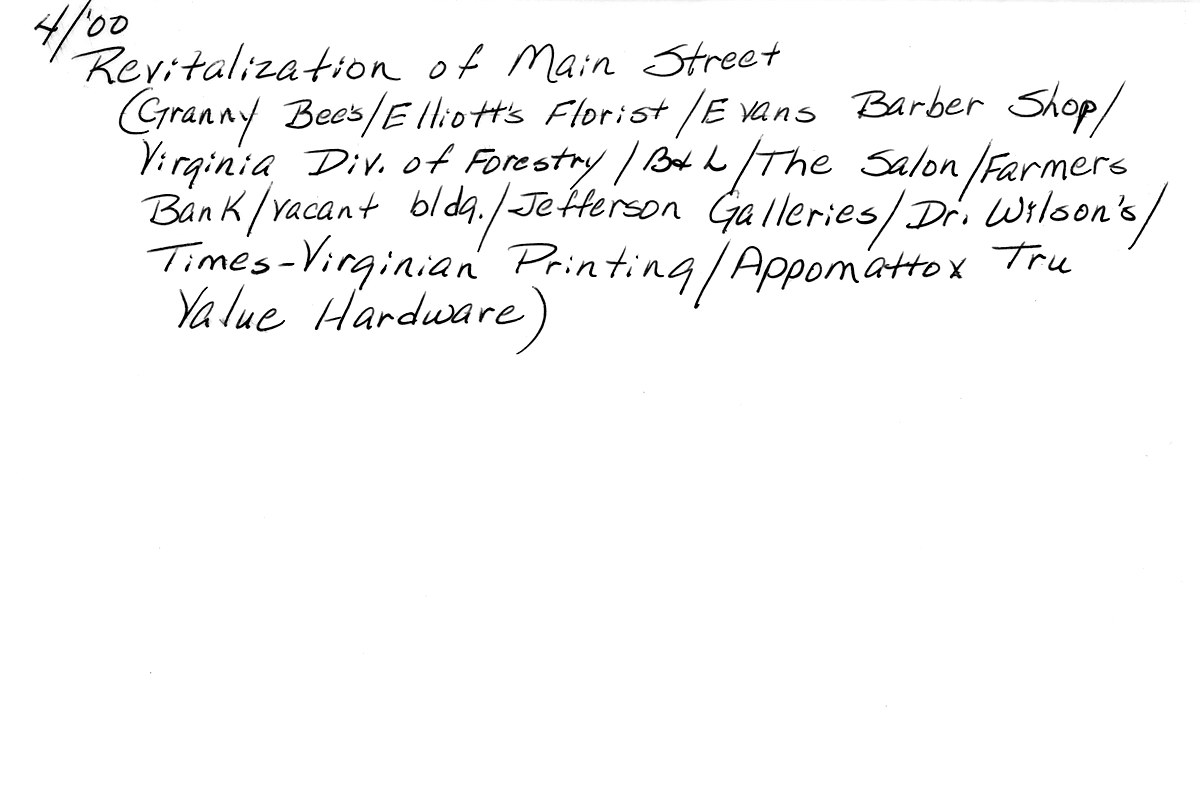 4/'00
Revitalization of Main Street
(Granny Bee's/Elliott's Florist/Evans Barber Shop/
Virginia Div. of Forestry/B&L/The Salon/Farmers
Bank/vacant bldg./Jefferson Galleries/Dr. Wilson's/
Times-Virginian Printing/Appomattox Tru
Value Hardware)